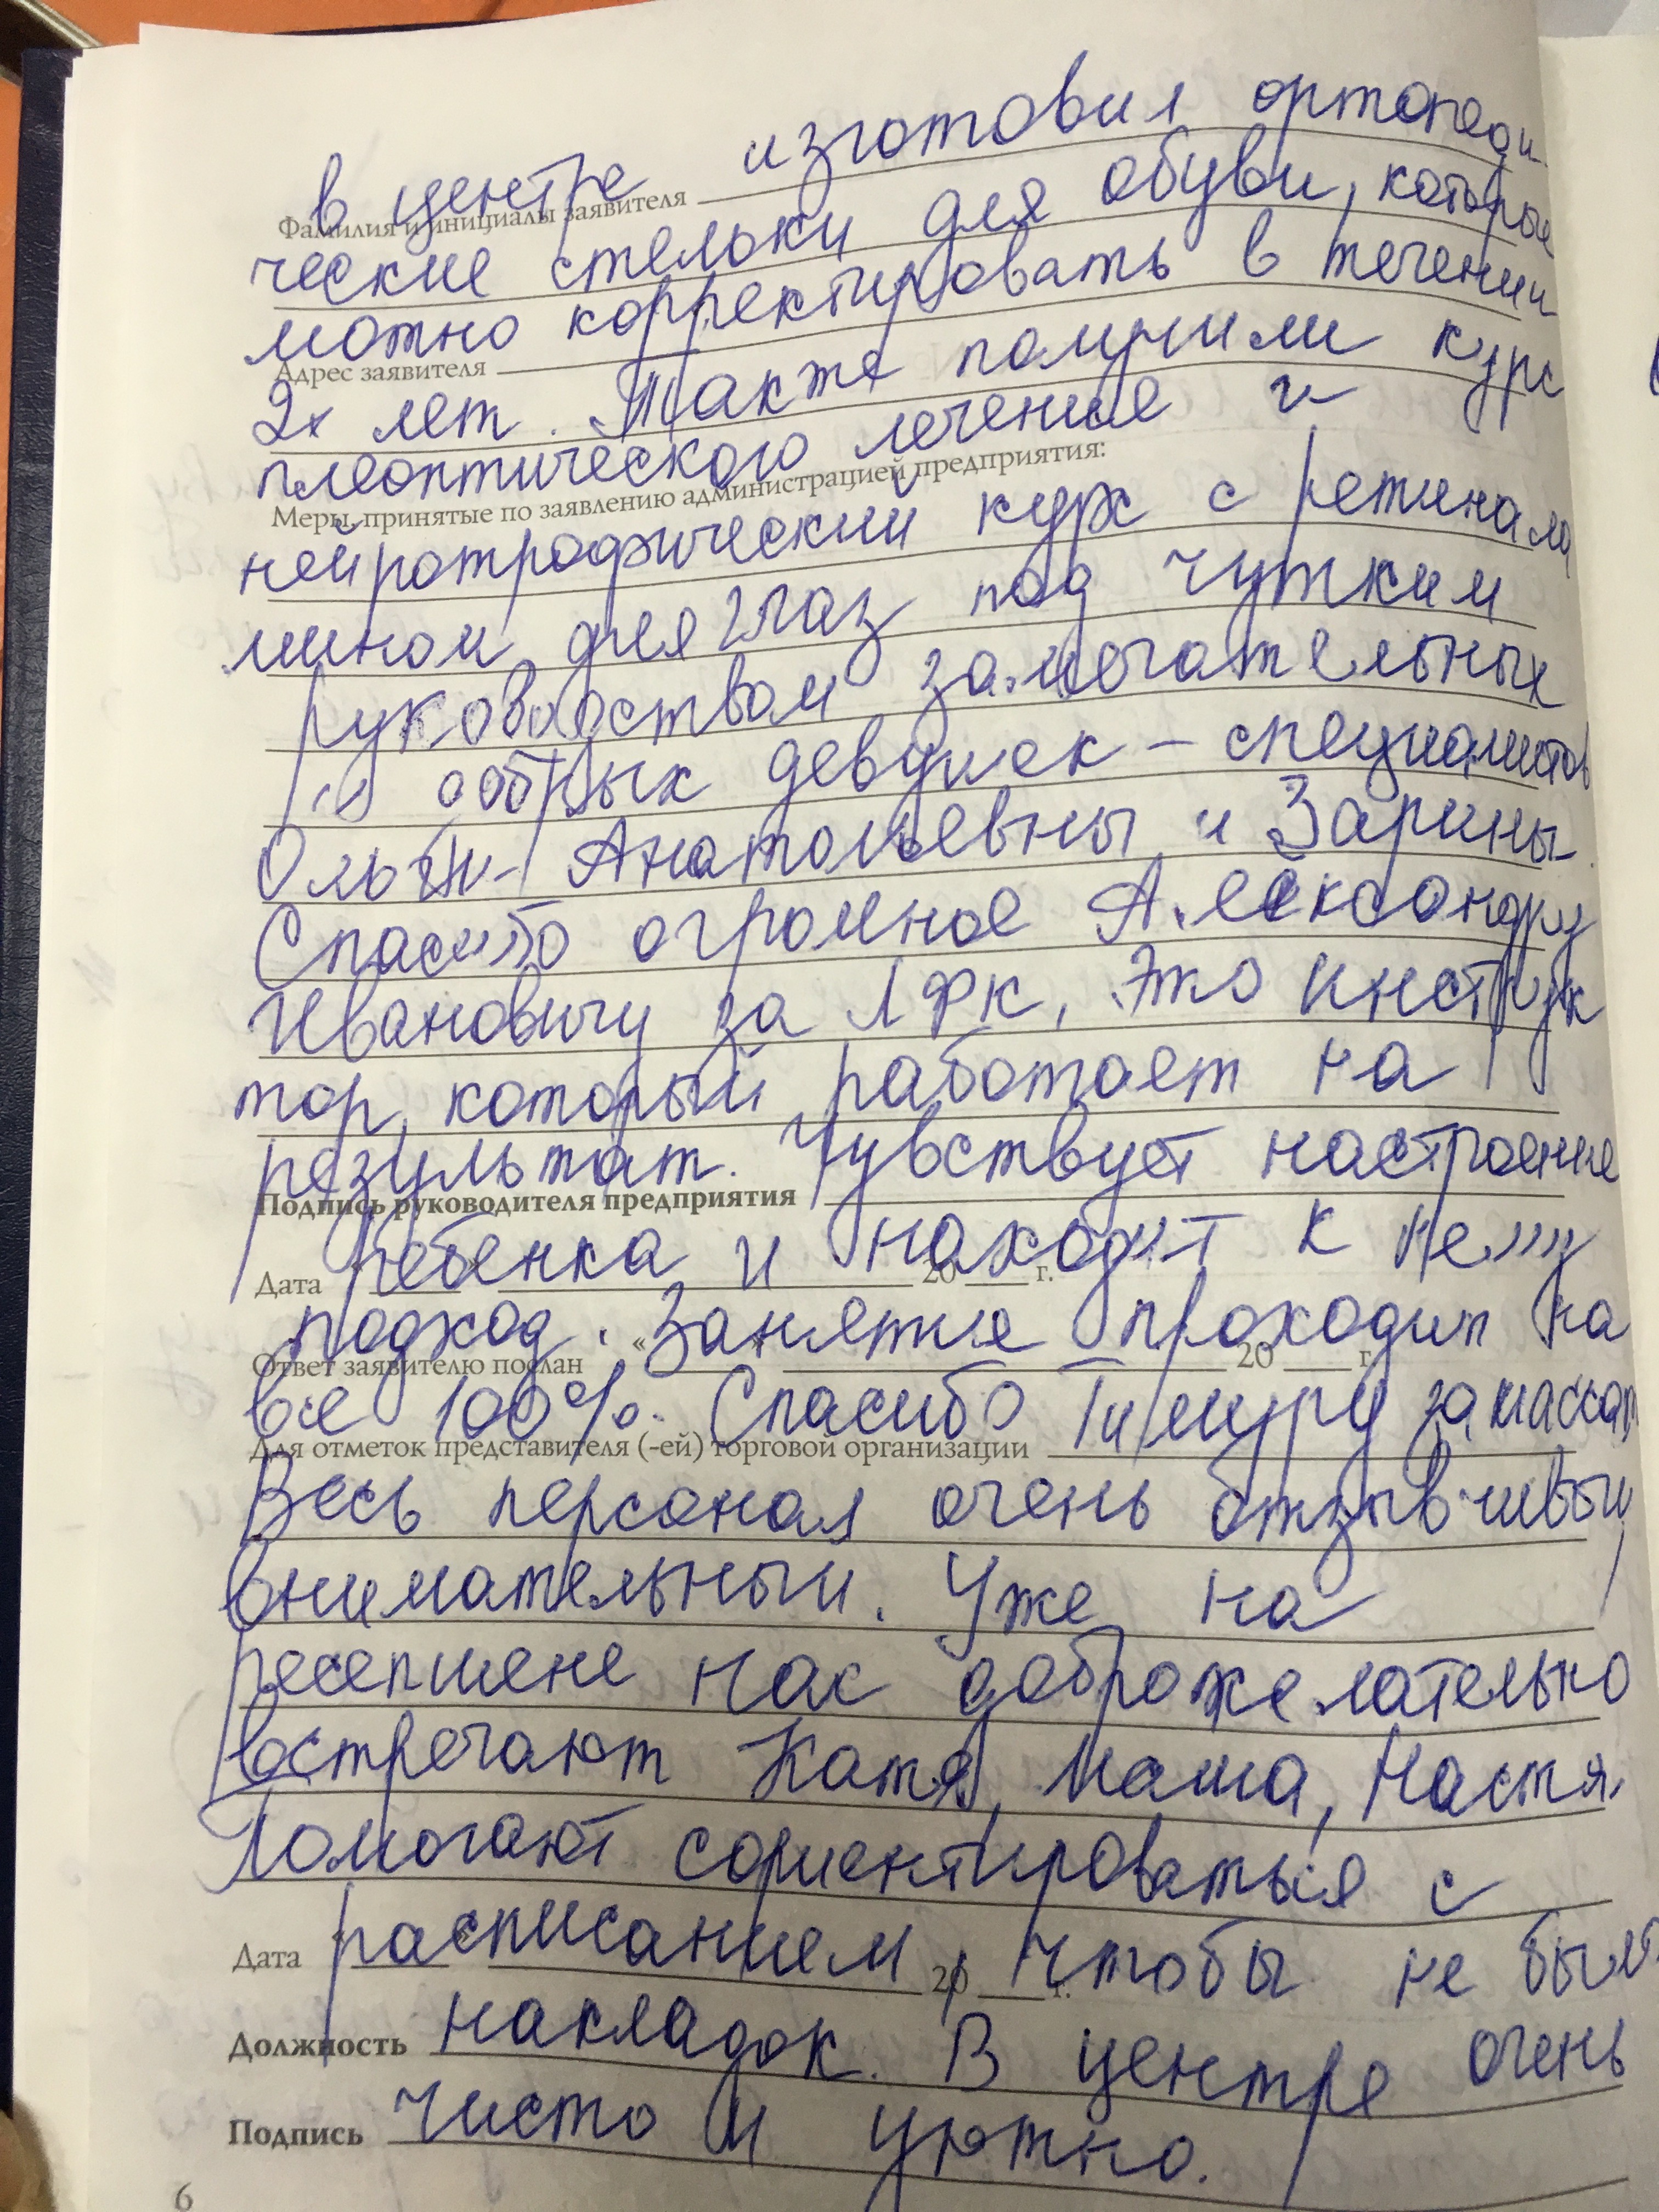 в центре изготовил ортопеди-
Фамилия и инициалы заявителя
ческие стельки для обуви, которые
можно корректировать в течении
Адрес заявителя
2х лет. Также получили курс
плеоптического лечение и
Меры, принятые по заявлению администрацией предприятия:
нейротрофический курс с ретинала
мином для глаз под чутким
руководством замечательных
и добрых девушек - специалистов
Ольги Анатольевны и Зарины.
Спасибо огромное Александру
Ивановичу за ЛФК, это инструк
тор, который работает на
результат. Чувствует настроение
Подпись руководителя предприятия
ребенка и находит к нему
Дата 20 г.
подход. Занятия проходит на
Ответ заявителю послан « 20 г.
все 100%. Спасибо Тимуру за массаж
Для отметок представителя (-ей) торговой организации
Весь персонал очень отзывчивый,
внимательный. Уже на
ресепшене нас доброжелательно
встречают Катя, Маша, Настя.
Помогают сориентироваться с
расписанием, чтобы не было
Дата 20 г.
накладок. В центре очень
Должность
чисто и уютно.
Подпись
6